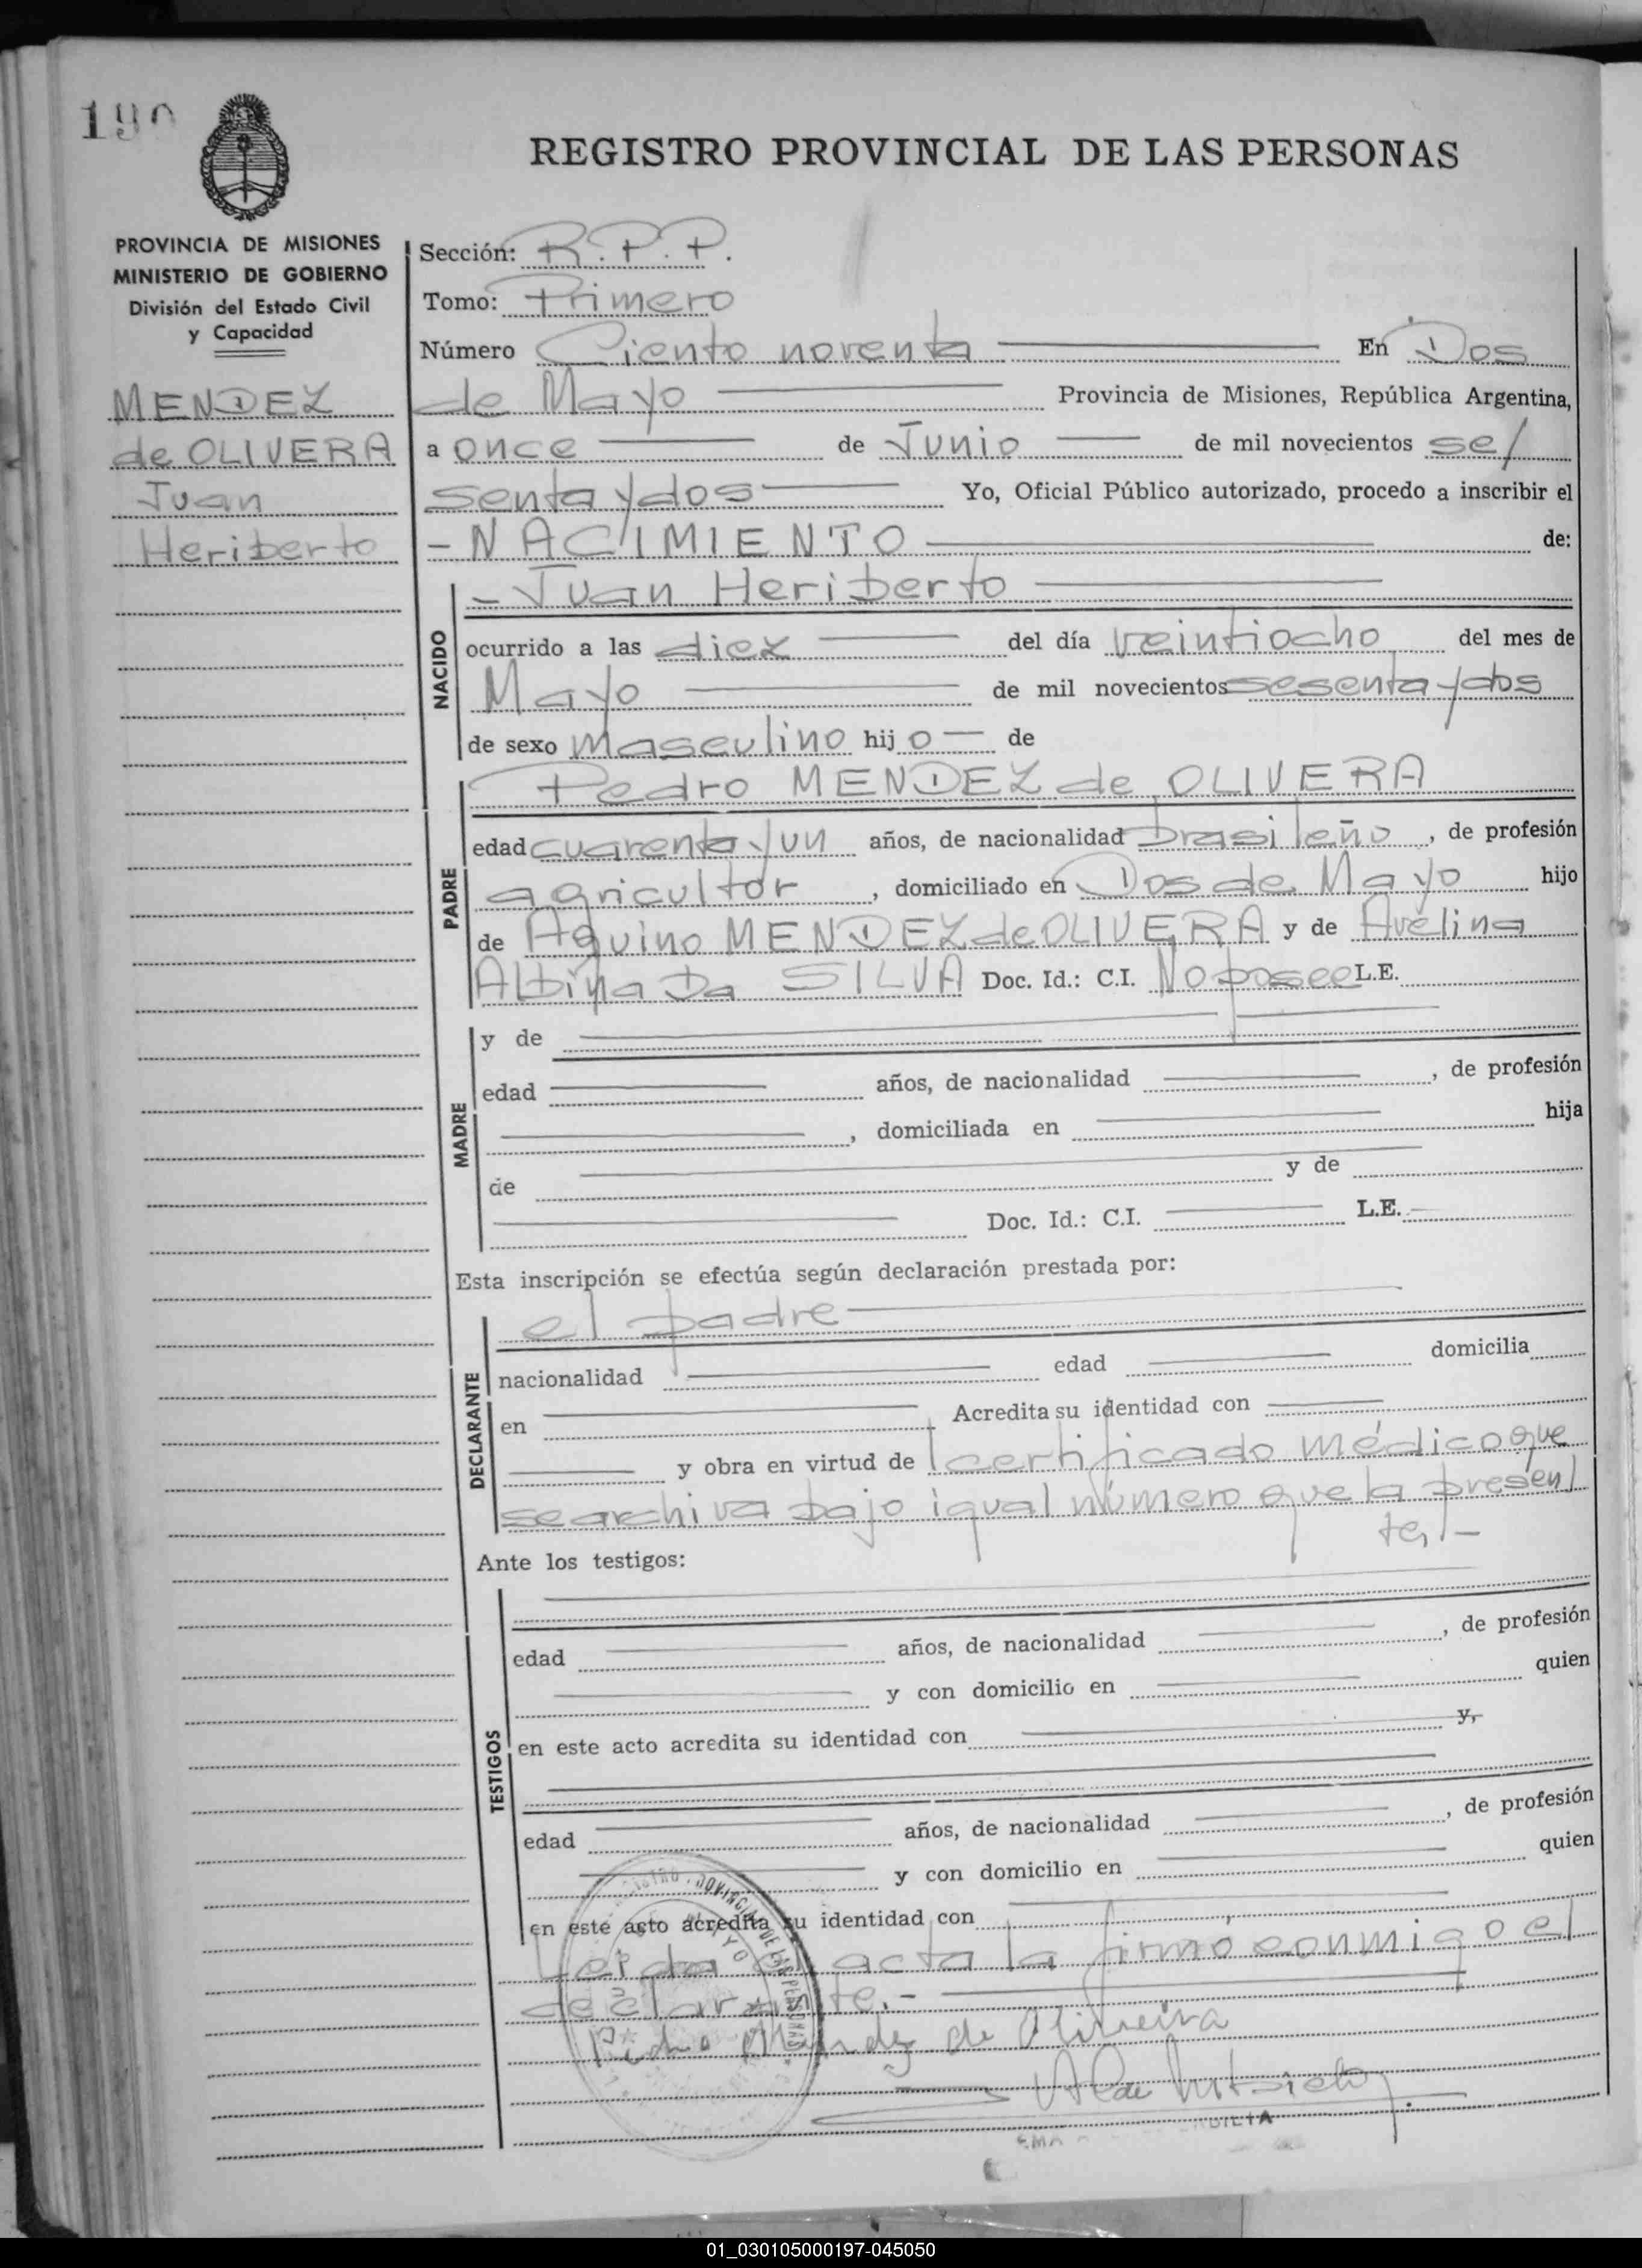 190
REGISTRO PROVINCIAL DE LAS PERSONAS
PROVINCIA DE MISIONES
MINISTERIO DE GOBIERNO
División del Estado Civil
y Capacidad
MENDEZ
de OLIVERA
Juan
Heriberto
Sección: R.P.P.
Tomo: Primero
Número Ciento noventa En Dos
de Mayo Provincia de Misiones, República Argentina,
a once de Junio de mil novecientos se/
senta y dos Yo, Oficial Público autorizado, procedo a inscribir el
- NACIMIENTO de:
NACIDO
- Juan Heriberto
ocurrido a las diez del día veintiocho del mes de
Mayo de mil novecientos sesenta y dos
de sexo masculino hij o de
PADRE
Pedro MENDEZ de OLIVERA
edad cuarenta y un años, de nacionalidad brasileño, de profesión
agricultor, domiciliado en Dos de Mayo hijo
de Aquino MENDEZ de OLIVERA y de Avelina
Albina Da SILVA Doc. Id.: C.I. No posee L.E.
MADRE
y de
edad años, de nacionalidad , de profesión
, domiciliada en hija
de y de
Doc. Id.: C.I. L.E.
Esta inscripción se efectúa según declaración prestada por:
DECLARANTE
el padre
nacionalidad edad domicilia
en Acredita su identidad con
y obra en virtud de certificado médico que
se archiva bajo igual número que la presen/
te,-
Ante los testigos:
TESTIGOS
edad años, de nacionalidad , de profesión
y con domicilio en quien
en este acto acredita su identidad con y,
edad años, de nacionalidad , de profesión
y con domicilio en quien
en este acto acredita su identidad con
Leída el acta la firmó conmigo el
declarante.-
Pedro Mendez de Oliveira
01_030105000197-045050